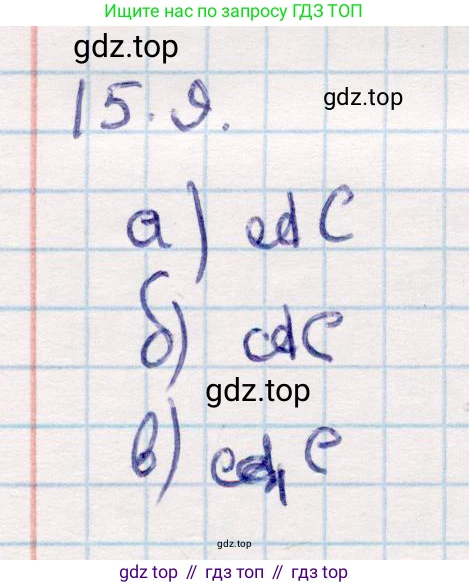 Ищите нас по запросу ГДЗ ТОП
gdz.top
15.9.
gdz.top
а) cd C
б) cd C
gdz.top
в) C
gdz.top
gdz.top // гдз топ // gdz top